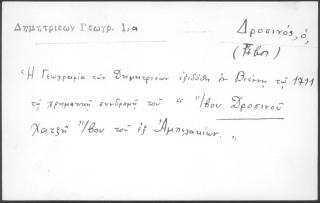 Δημητριέων Γεωγρ. 1,α
Δροσινός, ὁ,
(Ἴβος)
"Ἡ Γεωγραφία τῶν Δημητριέων ἐξεδόθη ἐν Βιέννῃ τῷ 1791
τῇ χρηματικῇ συνδρομῇ τοῦ " Ἴβου Δροσινοῦ
Χατζῆ Ἴβου τοῦ ἐξ Ἀμπελακίων. "